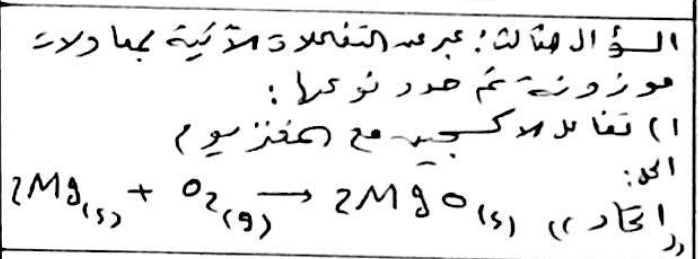 السؤال الثالث: عبر عن التفاعلات الآتية بمعادلات
موزونة ثم حدد نوعها:
١) تفاعل الاكسجين مع المغنزيوم
الحل:
2Mg(s) + O2(g) → 2MgO(s) "اتحاد"